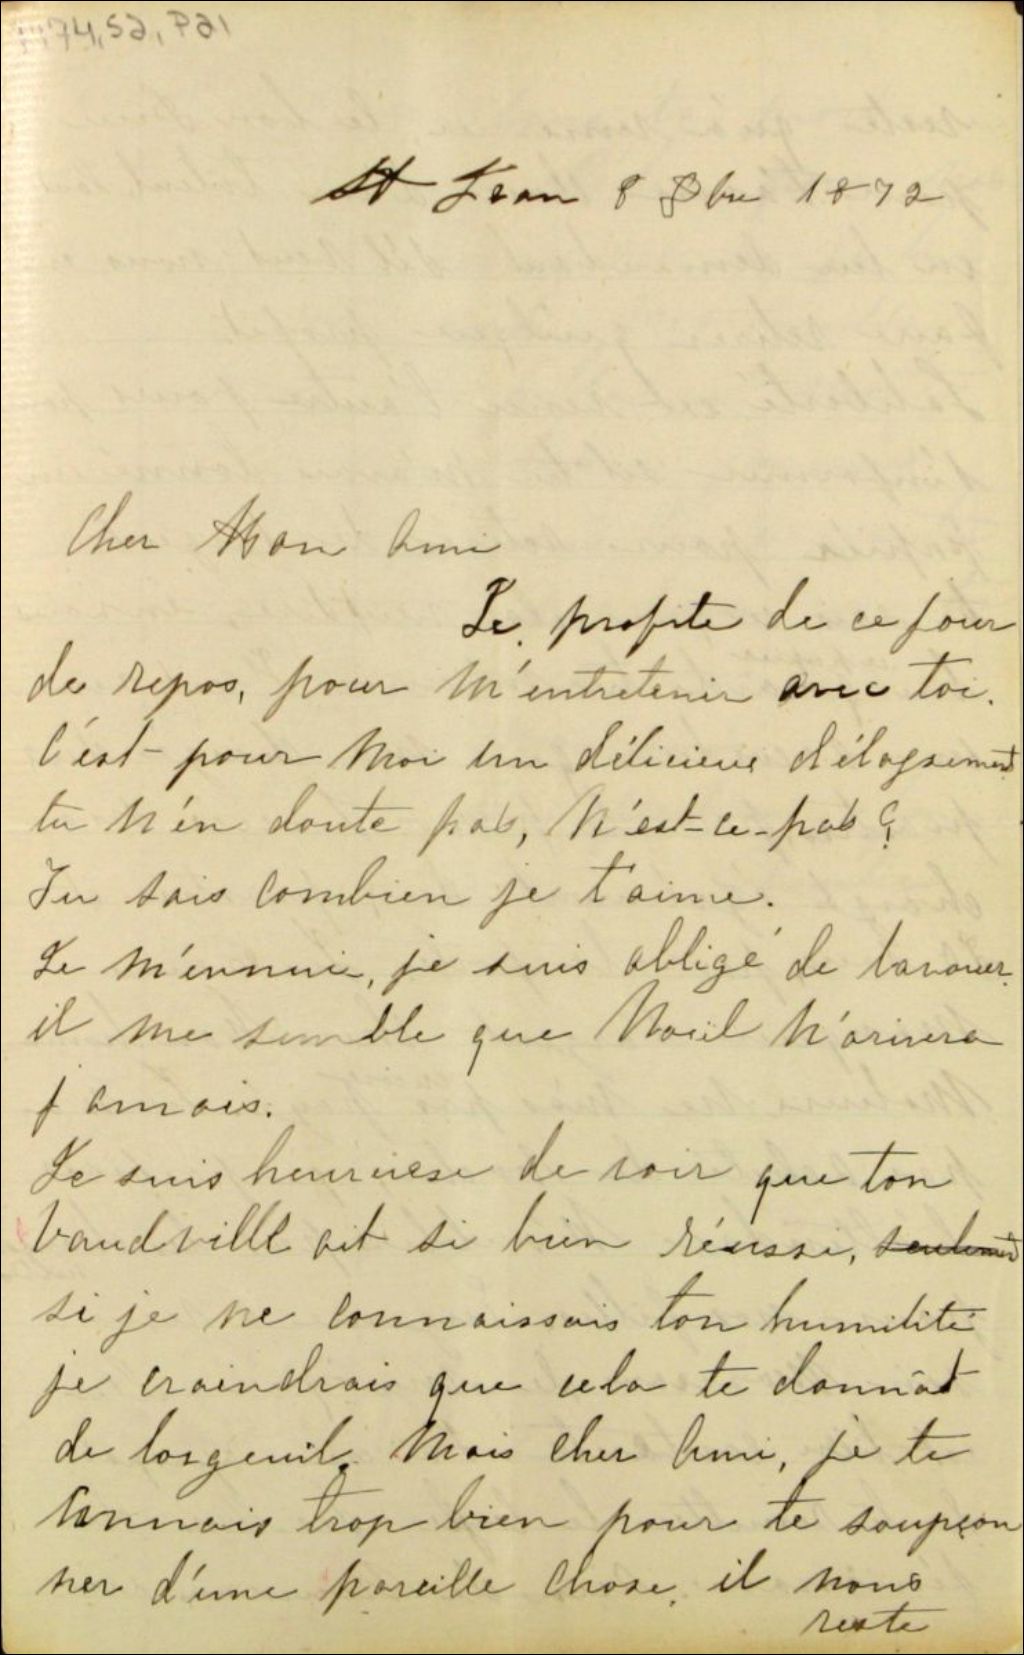 St Jean 8 8bre 1872
Cher Bon Ami
Je profite de ce jour
de repos, pour m'entretenir avec toi.
C'est pour moi un délicieux
tu n'en doute pas, n'est-ce-pas ?
Tu sais combien je t'aime.
Je m'ennuie, je suis obligé de lavouer
il me semble que Noël n'arivera
jamais.
Je suis heureuse de voir que ton
Vaudville ait si bien réussi, seulement
si je ne connaissais ton humilité
je craindrais que cela te donnât
de lorgeuil. Mais cher Ami, je te
connais trop bien pour te soupçon
ner d'une pareille chose, il nous
reste